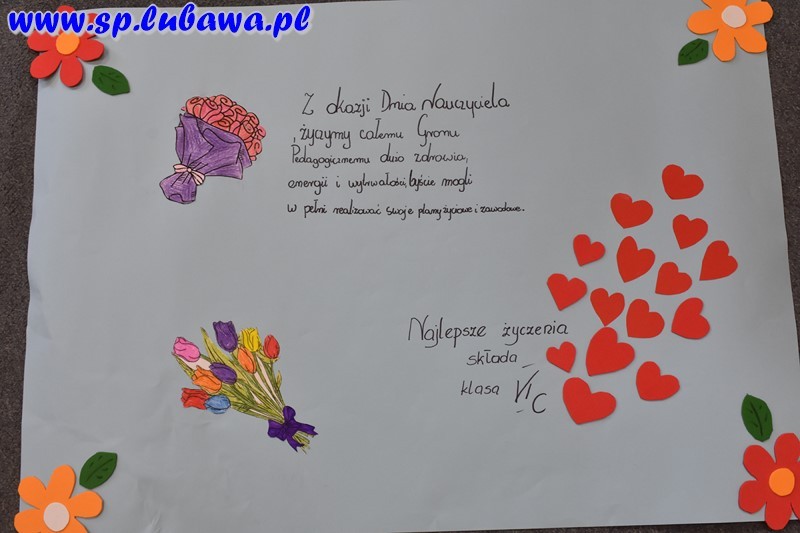 www.sp.lubawa.pl
Z okazji Dnia Nauczyciela
, życzymy całemu Gronu
Pedagogicznemu dużo zdrowia,
energii i wytrwałości, byście mogli
w pełni realizować swoje plany życiowe i zawodowe.
Najlepsze życzenia
składa
klasa VI C